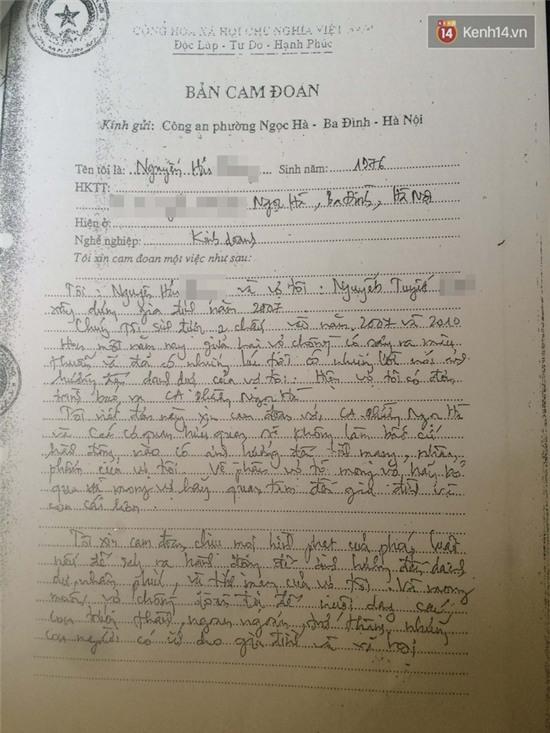 14 Kenh14.vn
CỘNG HÒA XÃ HỘI CHỦ NGHĨA VIỆT NAM
Độc Lập - Tự Do - Hạnh Phúc
BẢN CAM ĐOAN
Kính gửi: Công an phường Ngọc Hà - Ba Đình - Hà Nội
Tên tôi là: Nguyễn Hữu Sinh năm: 1976
HKTT:
Ngọc Hà, Ba Đình, Hà Nội
Hiện ở:
Nghề nghiệp: Kinh doanh
Tôi xin cam đoan một việc như sau:
Tôi: Nguyễn Hữu và vợ tôi. Nguyễn Tuyết
xây dựng gia đình năm 2007
Chúng tôi sinh được 2 cháu năm 2007 và 2010
Hơn một năm nay giữa hai vợ chồng có xảy ra mâu
thuẫn và đã có nhiều lúc tôi có nhiều lời nói ảnh
hưởng đến danh dự của vợ tôi. Hiện vợ tôi có đơn
trình báo CA phường Ngọc Hà
Tôi viết đơn này xin cam đoan với CA phường Ngọc Hà
và các cơ quan hữu quan sẽ không làm bất cứ
hành động nào có ảnh hưởng đến tính mạng, nhân
phẩm của vợ tôi. Về phần vợ tôi mong vợ hãy bỏ
qua và mong vợ hãy quan tâm đến gia đình và
con cái hơn.
Tôi xin cam đoan chịu mọi hình phạt của pháp luật
nếu để xảy ra hành động ảnh hưởng đến danh
dự, nhân phẩm, và tính mạng của vợ tôi. Và mong
muốn vợ chồng đoàn tụ để nuôi dạy các
con trưởng thành, ngoan ngoãn, trở thành những
con người có ích cho gia đình và xã hội